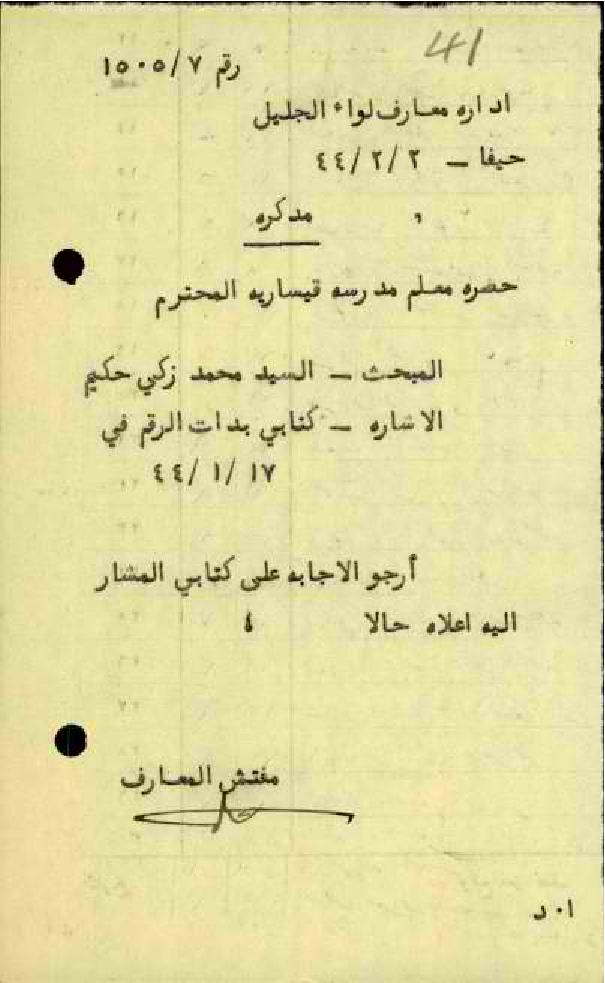 41
رقم ١٥٠٥/٧
اداره معارف لواء الجليل
حيفا – ٤٤/٢/٢
مدكره
حصره معلم مدرسه قيساريه المحترم
المبحث – السيد محمد زكي حكيم
الاشاره – كتابي بدات الرقم في
٤٤/١/١٧
أرجو الاجابه على كتابي المشار
اليه اعلاه حالا ٤
مفتش المعارف
ا٠د